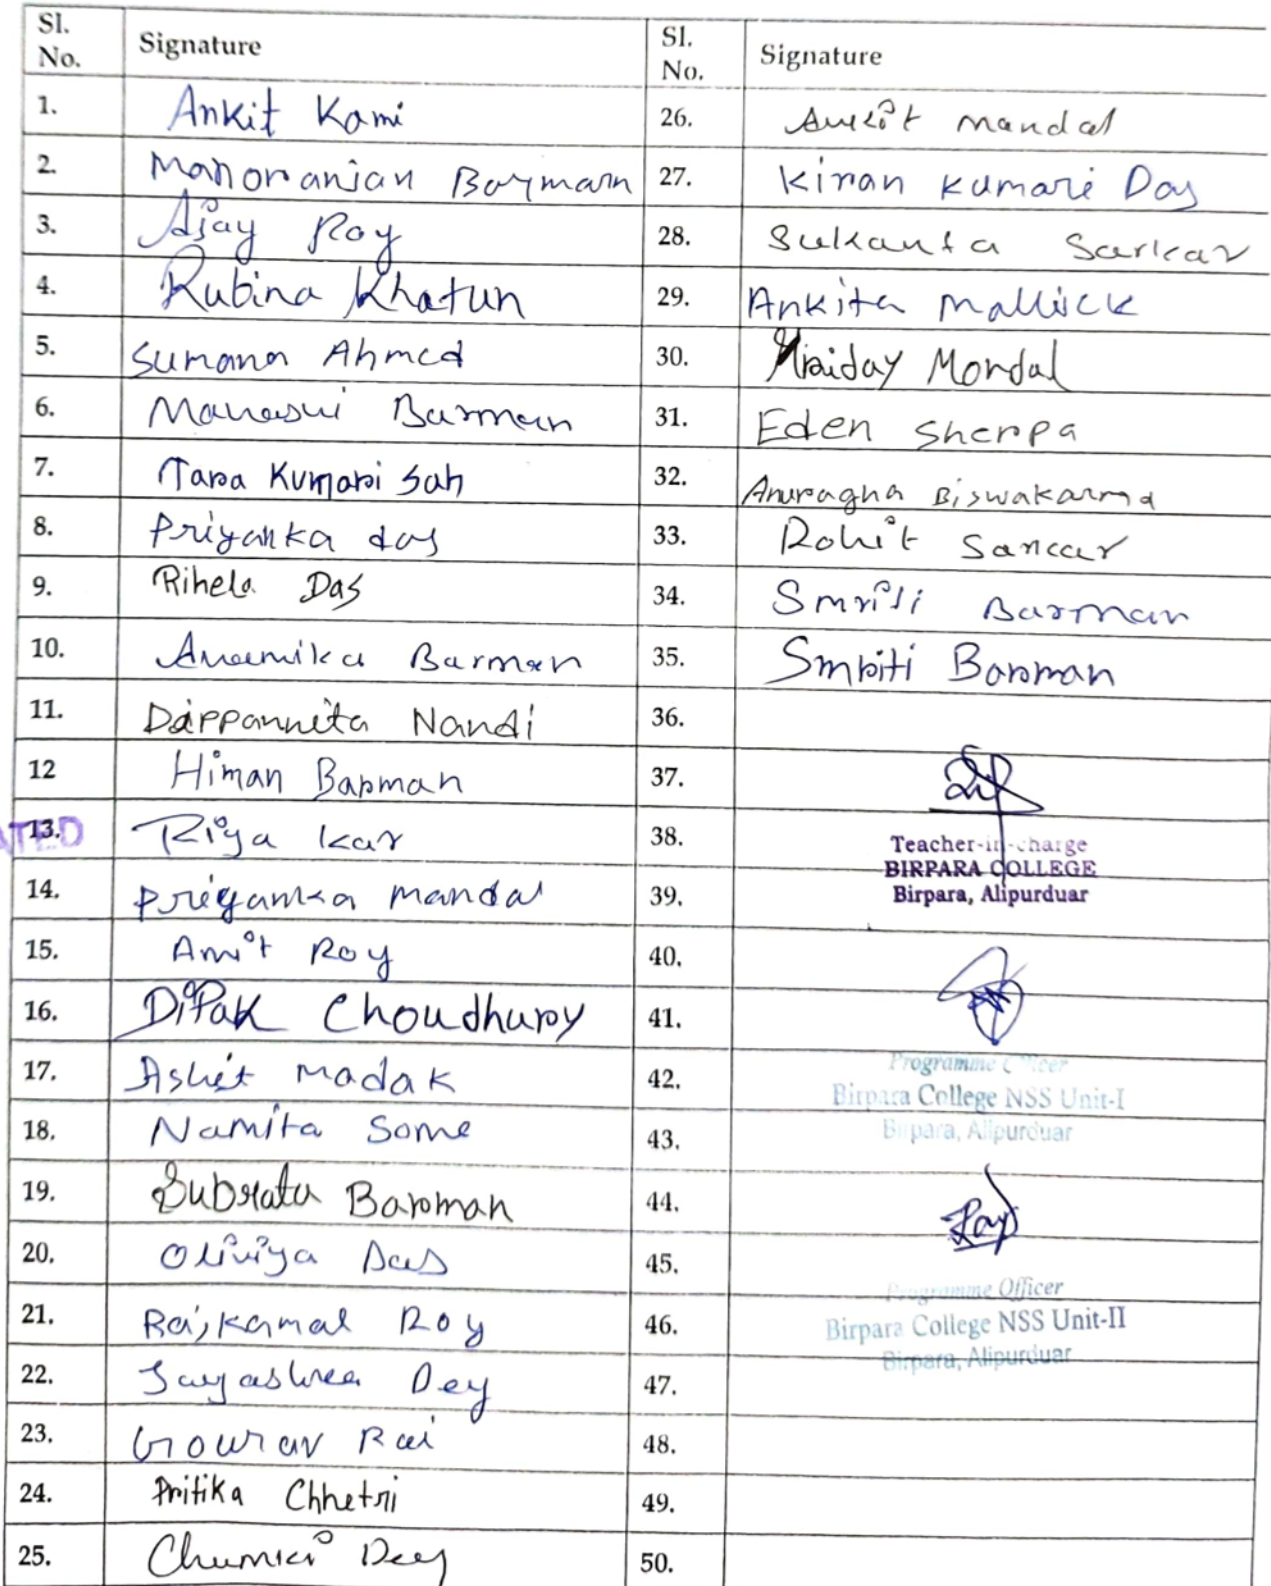 Sl. No. Signature Sl. No. Signature
1. Ankit Kami 26. Ankit Mandal
2. Manoranjan Barman 27. Kiran Kumari Das
3. Ajay Roy 28. Sukanta Sarkar
4. Rubina Khatun 29. Ankita Mallick
5. Sumana Ahmed 30. Hriday Mondal
6. Manasui Barman 31. Eden Sherpa
7. Tara Kumari Sah 32. Anuragha Biswakarma
8. Priyanka das 33. Rohit Sarkar
9. Rihela Das 34. Smriti Barman
10. Anamika Barman 35. Smriti Barman
11. Darpannita Nandi 36.
12 Himan Barman 37.
13. Riya Kar 38.
Teacher-in-charge
BIRPARA COLLEGE
14. Priyanka Mandal 39. Birpara, Alipurduar
15. Amit Roy 40.
16. Dipak Choudhury 41.
17. Ashit Madak 42. Programme Officer
Birpara College NSS Unit-I
18. Namita Some 43. Birpara, Alipurduar
19. Subrata Barman 44. Roy
20. Oliviya Das 45.
Programme Officer
21. Rajkamal Roy 46. Birpara College NSS Unit-II
Birpara, Alipurduar
22. Jayashree Dey 47.
23. Gourav Rai 48.
24. Pritika Chhetri 49.
25. Chumki Dey 50.